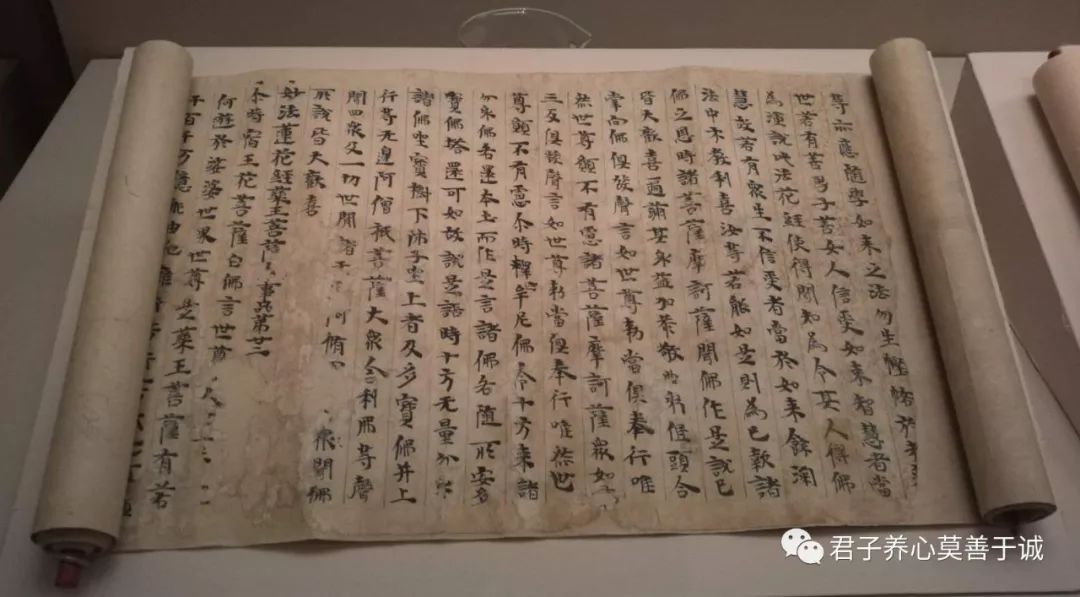 等亦應隨學如来之法勿生慳悋於
世若有善男子善女人信受如来智慧者當
為演說此法花経使得聞知為令其人得佛
慧故若有衆生不信受者當於如来餘深
法中示教利喜汝等若能如是則為已報諸
佛之恩時諸菩薩摩訶薩聞佛作是說已
皆大歡喜遍滿其身益加恭敬曲躬低頭合
掌向佛俱發聲言如世尊勅當俱奉行唯
然世尊願不有慮諸菩薩摩訶薩衆如是
三反俱發聲言如世尊勅當俱奉行唯然世
尊願不有慮尒時釋牟尼佛令十方来諸
分身佛各還本土而作是言諸佛各隨所安多
寶佛塔還可如故說是語時十方无量分身
諸佛坐寶樹下師子坐上者及多寶佛并上
行等无邊阿僧祇菩薩大衆舍利弗等聲
聞四衆及一切世間諸天阿脩衆聞佛
所說皆大歡喜
妙法蓮花経藥王菩薩事品第廿二
尒時宿王花菩薩白佛言世尊
何遊於娑婆世界世尊是藥王菩薩有若
干百千万億那由他難行苦行
君子养心莫善于诚